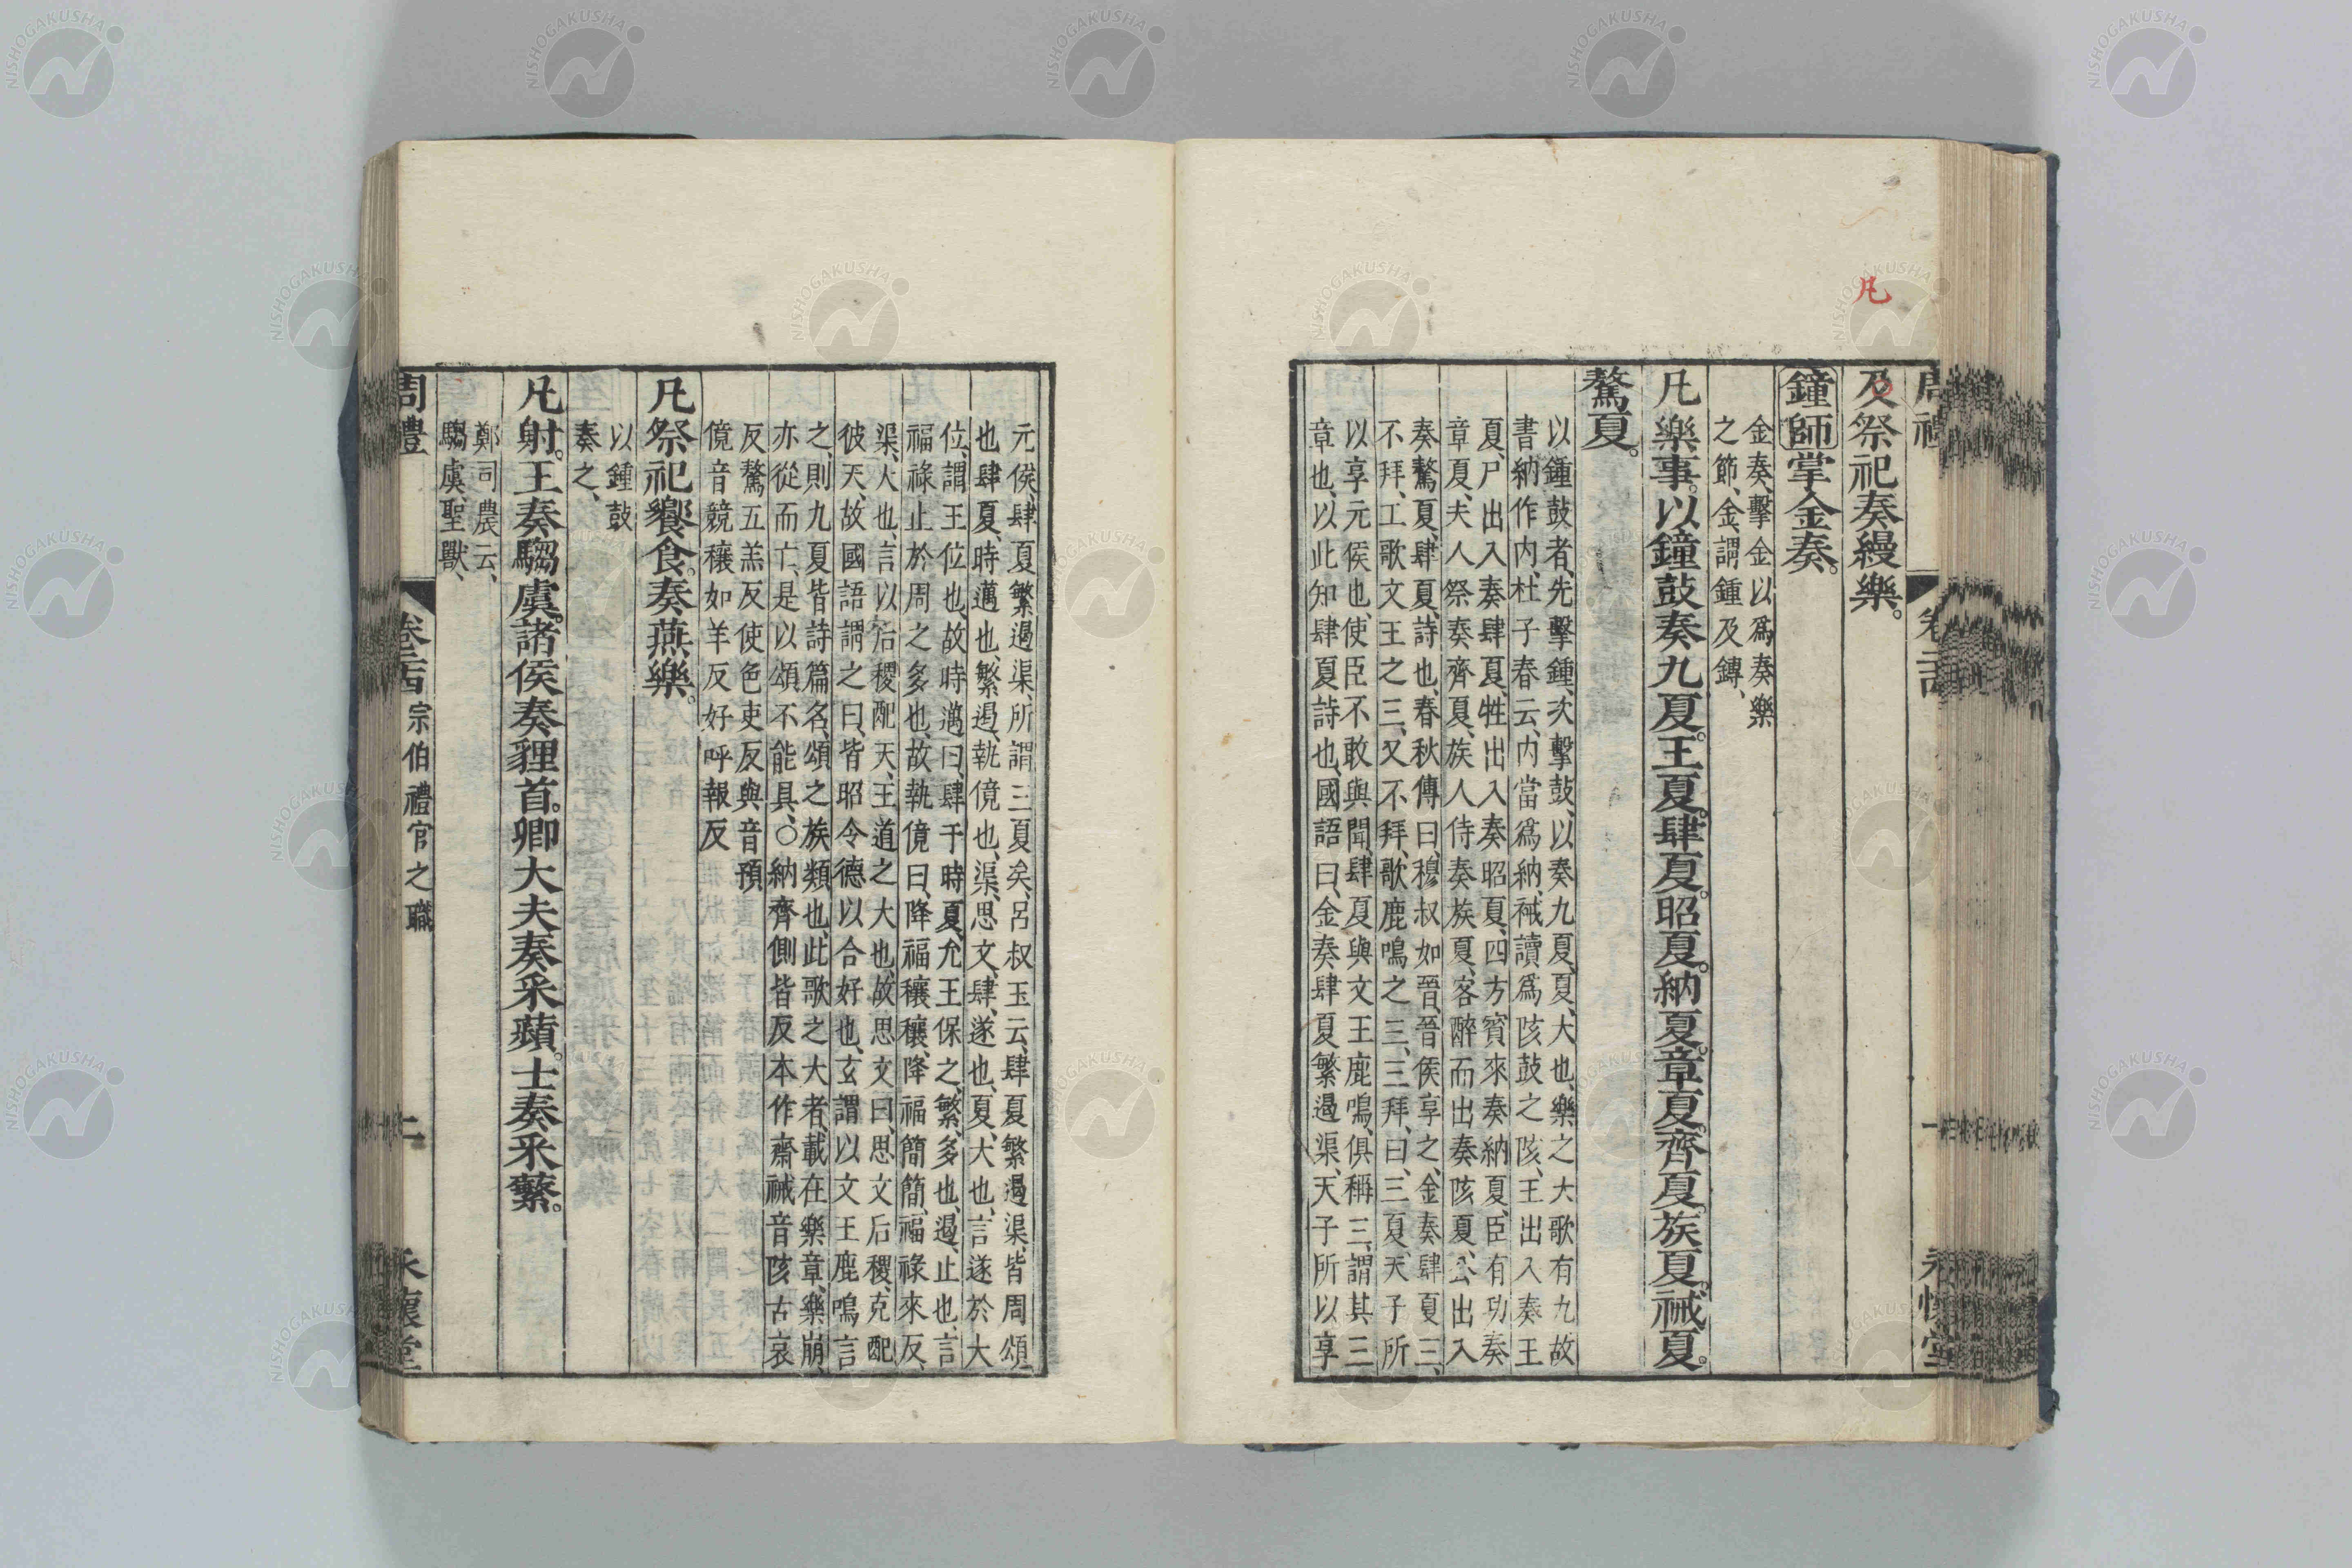 凡
及祭祀奏縵樂。
鐘師掌金奏。
金奏、擊金以爲奏樂
之節、金謂鍾及鎛、
凡樂事。以鐘鼓奏九夏。王夏。肆夏。昭夏。納夏。章夏。齊夏。族夏。祴夏。
驁夏。
以鍾鼓者、先擊鍾、次擊鼓、以奏九夏、夏、大也、樂之大歌有九、故
書納作内、杜子春云、内當爲納、祴讀爲陔鼓之陔、王出入奏王
夏、尸出入奏肆夏、牲出入奏昭夏、四方賓來奏納夏、臣有功奏
章夏、夫人祭奏齊夏、族人侍奏族夏、客醉而出奏陔夏、公出入
奏驁夏、肆夏、詩也、春秋傳曰、穆叔如晉、晉侯享之、金奏肆夏三、
不拜、工歌文王之三、又不拜、歌鹿鳴之三、三拜、曰、三夏、天子所
以享元侯也、使臣不敢與聞、肆夏與文王鹿鳴、俱稱三、謂其三
章也、以此知肆夏詩也、國語曰、金奏肆夏繁遏渠、天子所以享
元侯、肆夏繁遏渠、所謂三夏矣、呂叔玉云、肆夏繁遏渠、皆周頌
也、肆夏、時邁也、繁遏、執儓也、渠、思文、肆、遂也、夏、大也、言遂於大
位、謂王位也、故時邁曰、肆于時夏、允王保之、繁、多也、遏、止也、言
福祿止於周之多也、故執儓曰、降福穰穰、降福簡簡、福祿來反、
渠、大也、言以后稷配天、王道之大也、故思文曰、思文后稷、克配
彼天、故國語謂之曰、皆昭令德以合好也、玄謂以文王鹿鳴言
之、則九夏皆詩篇名、頌之族類也、此歌之大者、載在樂章、樂崩、
亦從而亡、是以頌不能具、○納齊側皆反本作齋祴音陔古哀
反驁五羔反使色吏反與音預
儓音競穰如羊反好呼報反
凡祭祀饗食。奏燕樂。
以鍾鼓
奏之、
凡射。王奏騶虞。諸侯奏貍首。卿大夫奏采蘋。士奏采蘩。
鄭司農云、
騶虞、聖獸、
周禮 卷二十四 宗伯禮官之職 二 永懷堂